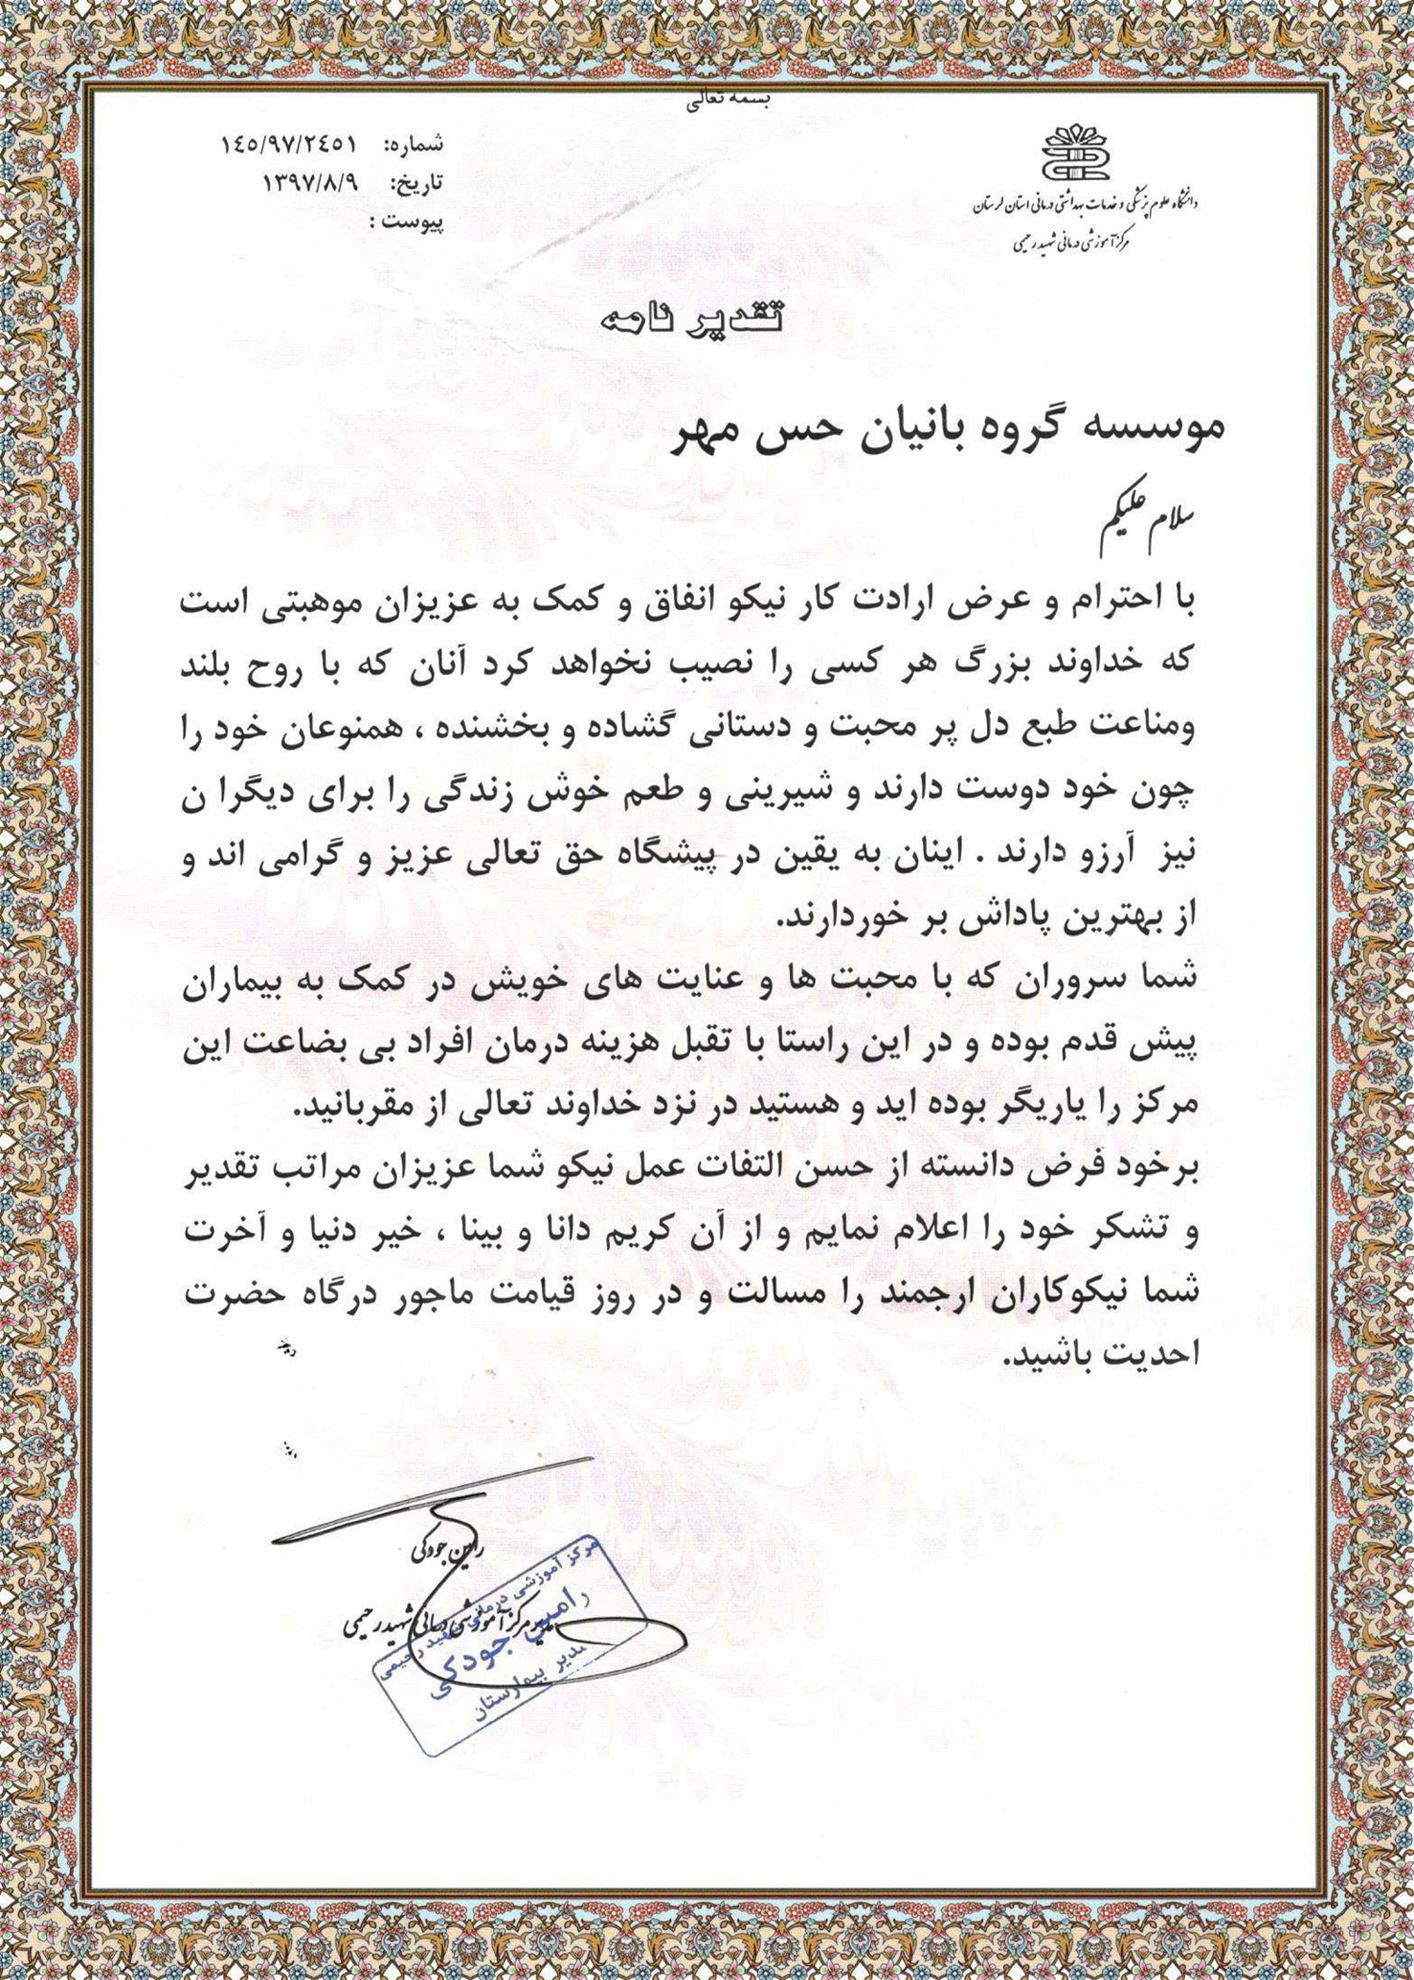 بسمه تعالی
دانشگاه علوم پزشکی و خدمات بهداشتی درمانی استان لرستان
مرکز آموزشی درمانی شهید رحیمی
شماره: ١٤٥/٩٧/٢٤٥١
تاریخ: ١٣٩٧/٨/٩
پیوست :
تقدیر نامه
موسسه گروه بانیان حس مهر
سلام علیکم
با احترام و عرض ارادت کار نیکو انفاق و کمک به عزیزان موهبتی است
که خداوند بزرگ هر کسی را نصیب نخواهد کرد آنان که با روح بلند
ومناعت طبع دل پر محبت و دستانی گشاده و بخشنده ، همنوعان خود را
چون خود دوست دارند و شیرینی و طعم خوش زندگی را برای دیگرا ن
نیز آرزو دارند . اینان به یقین در پیشگاه حق تعالی عزیز و گرامی اند و
از بهترین پاداش بر خوردارند.
شما سروران که با محبت ها و عنایت های خویش در کمک به بیماران
پیش قدم بوده و در این راستا با تقبل هزینه درمان افراد بی بضاعت این
مرکز را یاریگر بوده اید و هستید در نزد خداوند تعالی از مقربانید.
برخود فرض دانسته از حسن التفات عمل نیکو شما عزیزان مراتب تقدیر
و تشکر خود را اعلام نمایم و از آن کریم دانا و بینا ، خیر دنیا و آخرت
شما نیکوکاران ارجمند را مسالت و در روز قیامت ماجور درگاه حضرت
احدیت باشید.
رامین جودکی
مدیر مرکز آموزشی درمانی شهید رحیمی
مرکز آموزشی درمانی شهید رحیمی
رامین جودکی
مدیر بیمارستان